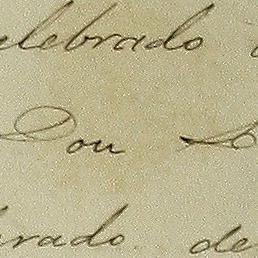 elebrado
Don
brado de